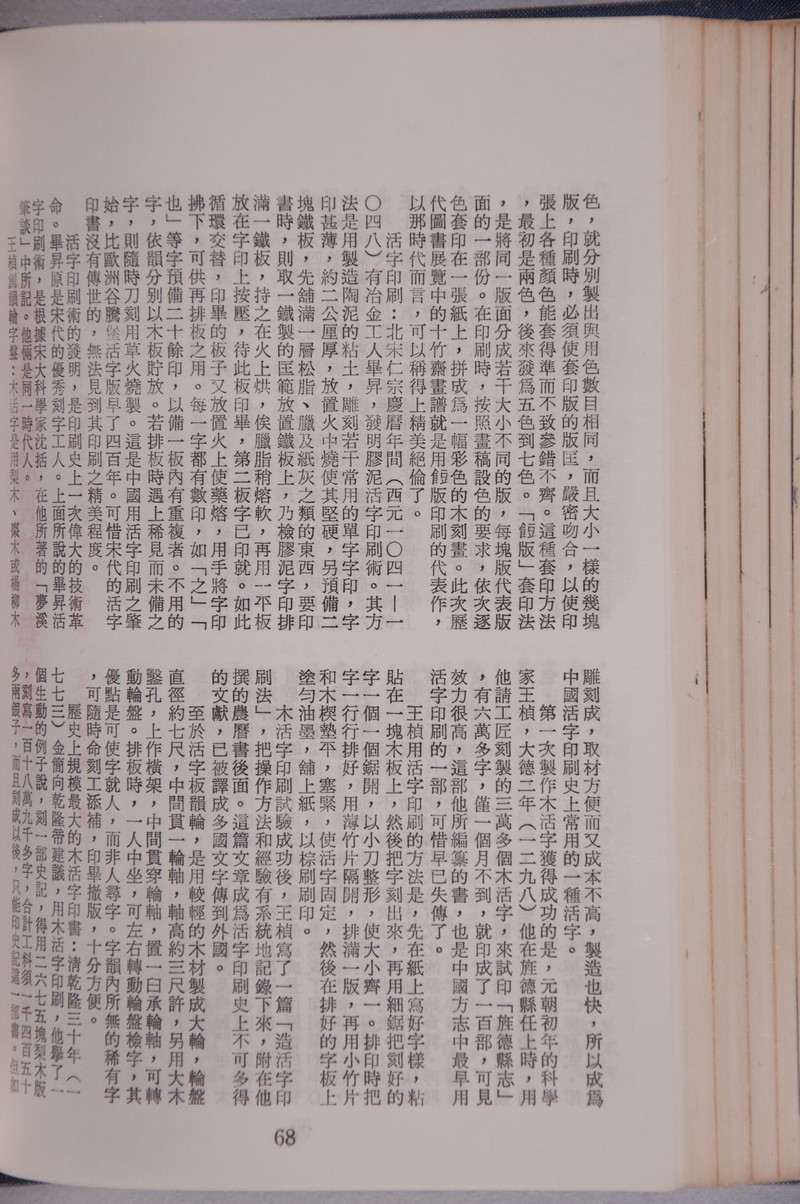 色，就分別製出與用色數目相同，而且大小一樣的幾塊
版，印刷時，必須使套印版的版匡，嚴密吻合，以使印
張上各種顏色能套得準而不致參錯不齊。這種套印方法
，最初是兩色，後來發爲五色到七色。「餖版」套印法
，是將同一版面分成若干大小不同的版，每塊版代表版
面的一部份。在印刷時，按照畫稿設色的要求，依次逐
色套印在一張紙上，拼成爲一幅彩色的木刻畫。此次歷
代圖書展覽中的十竹齋畫譜就是用餖版印刷的代表作，
以那時代而言，可以稱得上精美絕倫了。
活字印刷：北宋仁宗慶曆年間（西元一〇四一—一
〇四八）有冶金工人畢昇，發明膠泥活字印刷術。其方
法是用製造陶泥的粘土，雕刻若干常用的單字字印，字
印甚薄，約二公厘厚，放置火中燒使其堅硬，另預備二
塊鐵板，先舖滿一層松脂、臘及紙灰之類的東西，要印
書時，則取一鐵製的匡範放置鐵板上，乃檢膠泥字印排
滿一鐵板，持之在火上烘，俟臘脂稍熔軟，再用一平板
放在字印上按壓，待此板印畢，第二板字已印就。如此
循環交替，印畢的板子又放置火上使藥熔，用手將字印
拂下，可供再排板之用。每一字都有數印，如「之」「
也」等字預備二十餘印，以備一板內有重複者。不用的
字，依韻分別以木板貯放。若排板時遇上稀見而未備之
字，則隨時刀刻用草火燒製。這是中國用活字印刷之肇
始，比歐洲谷騰堡活字版早了四百年。可惜宋代的活字
印書沒有傳世的，無法見到其印刷之精美程度。
活字印刷術的發明，是印刷史上一次偉大的技術革
命。畢昇原是宋代的優秀刻字工人。上面所說的畢昇活
字印刷術，是根據宋大科學家沈括，在他所著的「夢溪
筆談」中所記。他倆是同一時代人。
王楨創韻輪字盤：木活字是用梨木、棗木或楊柳木
雕刻成，取材方便而又成本不高，製造也快，所以成爲
中國活字印刷史上常用的一種活字。
第一次製作木活字獲得成功的是，元朝初年的科學
家王楨，大德二年（一二九八）他在旌德縣任上時，用
他請工匠刻製的三萬多個木活字，來試印「旌德縣志」
，有六萬多字，僅一個月不到，就印成了一百部，可見
效力很高，這部他所編纂的書，也是中國方志中最早用
活字印刷的一部，可惜早已失傳了。
王楨用活字印刷的方法是，先在紙上寫好字樣，粘
貼在一塊木板上，然後把字刻出來，再用細鋸把刻好的
字一個一個鋸開，以小刀整形，使大小齊一。排印時把
字一行行排好，用薄竹片隔開，排滿一版，再用小竹片
和木楔墊平，塞緊，使活字固定，然後在排好的字板上
塗勻油墨，舖上紙，以棕刷刷印。
木活字印刷試驗成功後，王楨寫了一篇「造活字印
刷法」，把操作方法和經驗有系統地記錄下來，附在他
撰的農曆書後面。這篇文章成爲活字印刷史上不可多得
的文獻，已被譯成多國文字傳到外國。
至於活字板韻輪，是用較輕的木材製成大輪，輪盤
直徑約七尺，中間貫一輪軸，軸高約三尺許，另用大木
鑿孔，上作橫架，中間貫穿輪軸，置一臼承輪軸，可轉
動輪盤。排板時，一人中坐，可左右轉動輪盤檢字，其
優點是可使字就人，而非人尋字。字韻內所無的稀有字
，可隨時命刻工添補，印畢撤版，十分方便。
歷史上規模最大的木活字印書：清乾隆三十年（一
七七三）金簡向乾隆帝建議，用木活字印刷，他擧了一
個生動的例子說，刻一部史記，得用二六七五塊梨木版
，刻寫一百十八萬九千多字，合計工料須一千四百五十
多兩銀子，而且刻成以後，只能印史記這一部書。但如
68